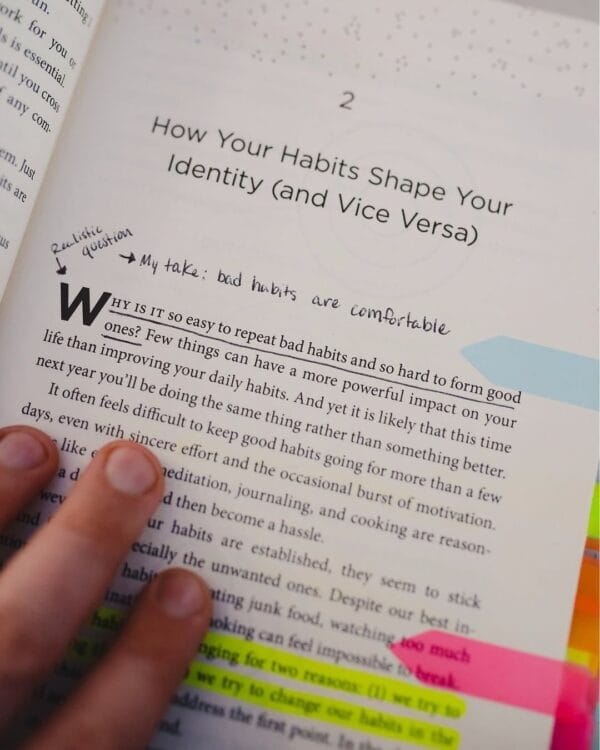 un.
ork for you or
ls is essential.
ntil you cross
f any com-
em. Just
its are
us
2
How Your Habits Shape Your
Identity (and Vice Versa)
Realistic
question
→ My take: bad habits are comfortable
WHY IS IT so easy to repeat bad habits and so hard to form good
ones? Few things can have a more powerful impact on your
life than improving your daily habits. And yet it is likely that this time
next year you'll be doing the same thing rather than something better.
It often feels difficult to keep good habits going for more than a few
days, even with sincere effort and the occasional burst of motivation.
like meditation, journaling, and cooking are reason-
a d then become a hassle.
ur habits are established, they seem to stick
ecially the unwanted ones. Despite our best in-
habi ating junk food, watching too much
oking can feel impossible to break.
nging for two reasons: (1) we try to
we try to change our habits in the
address the first point. In th